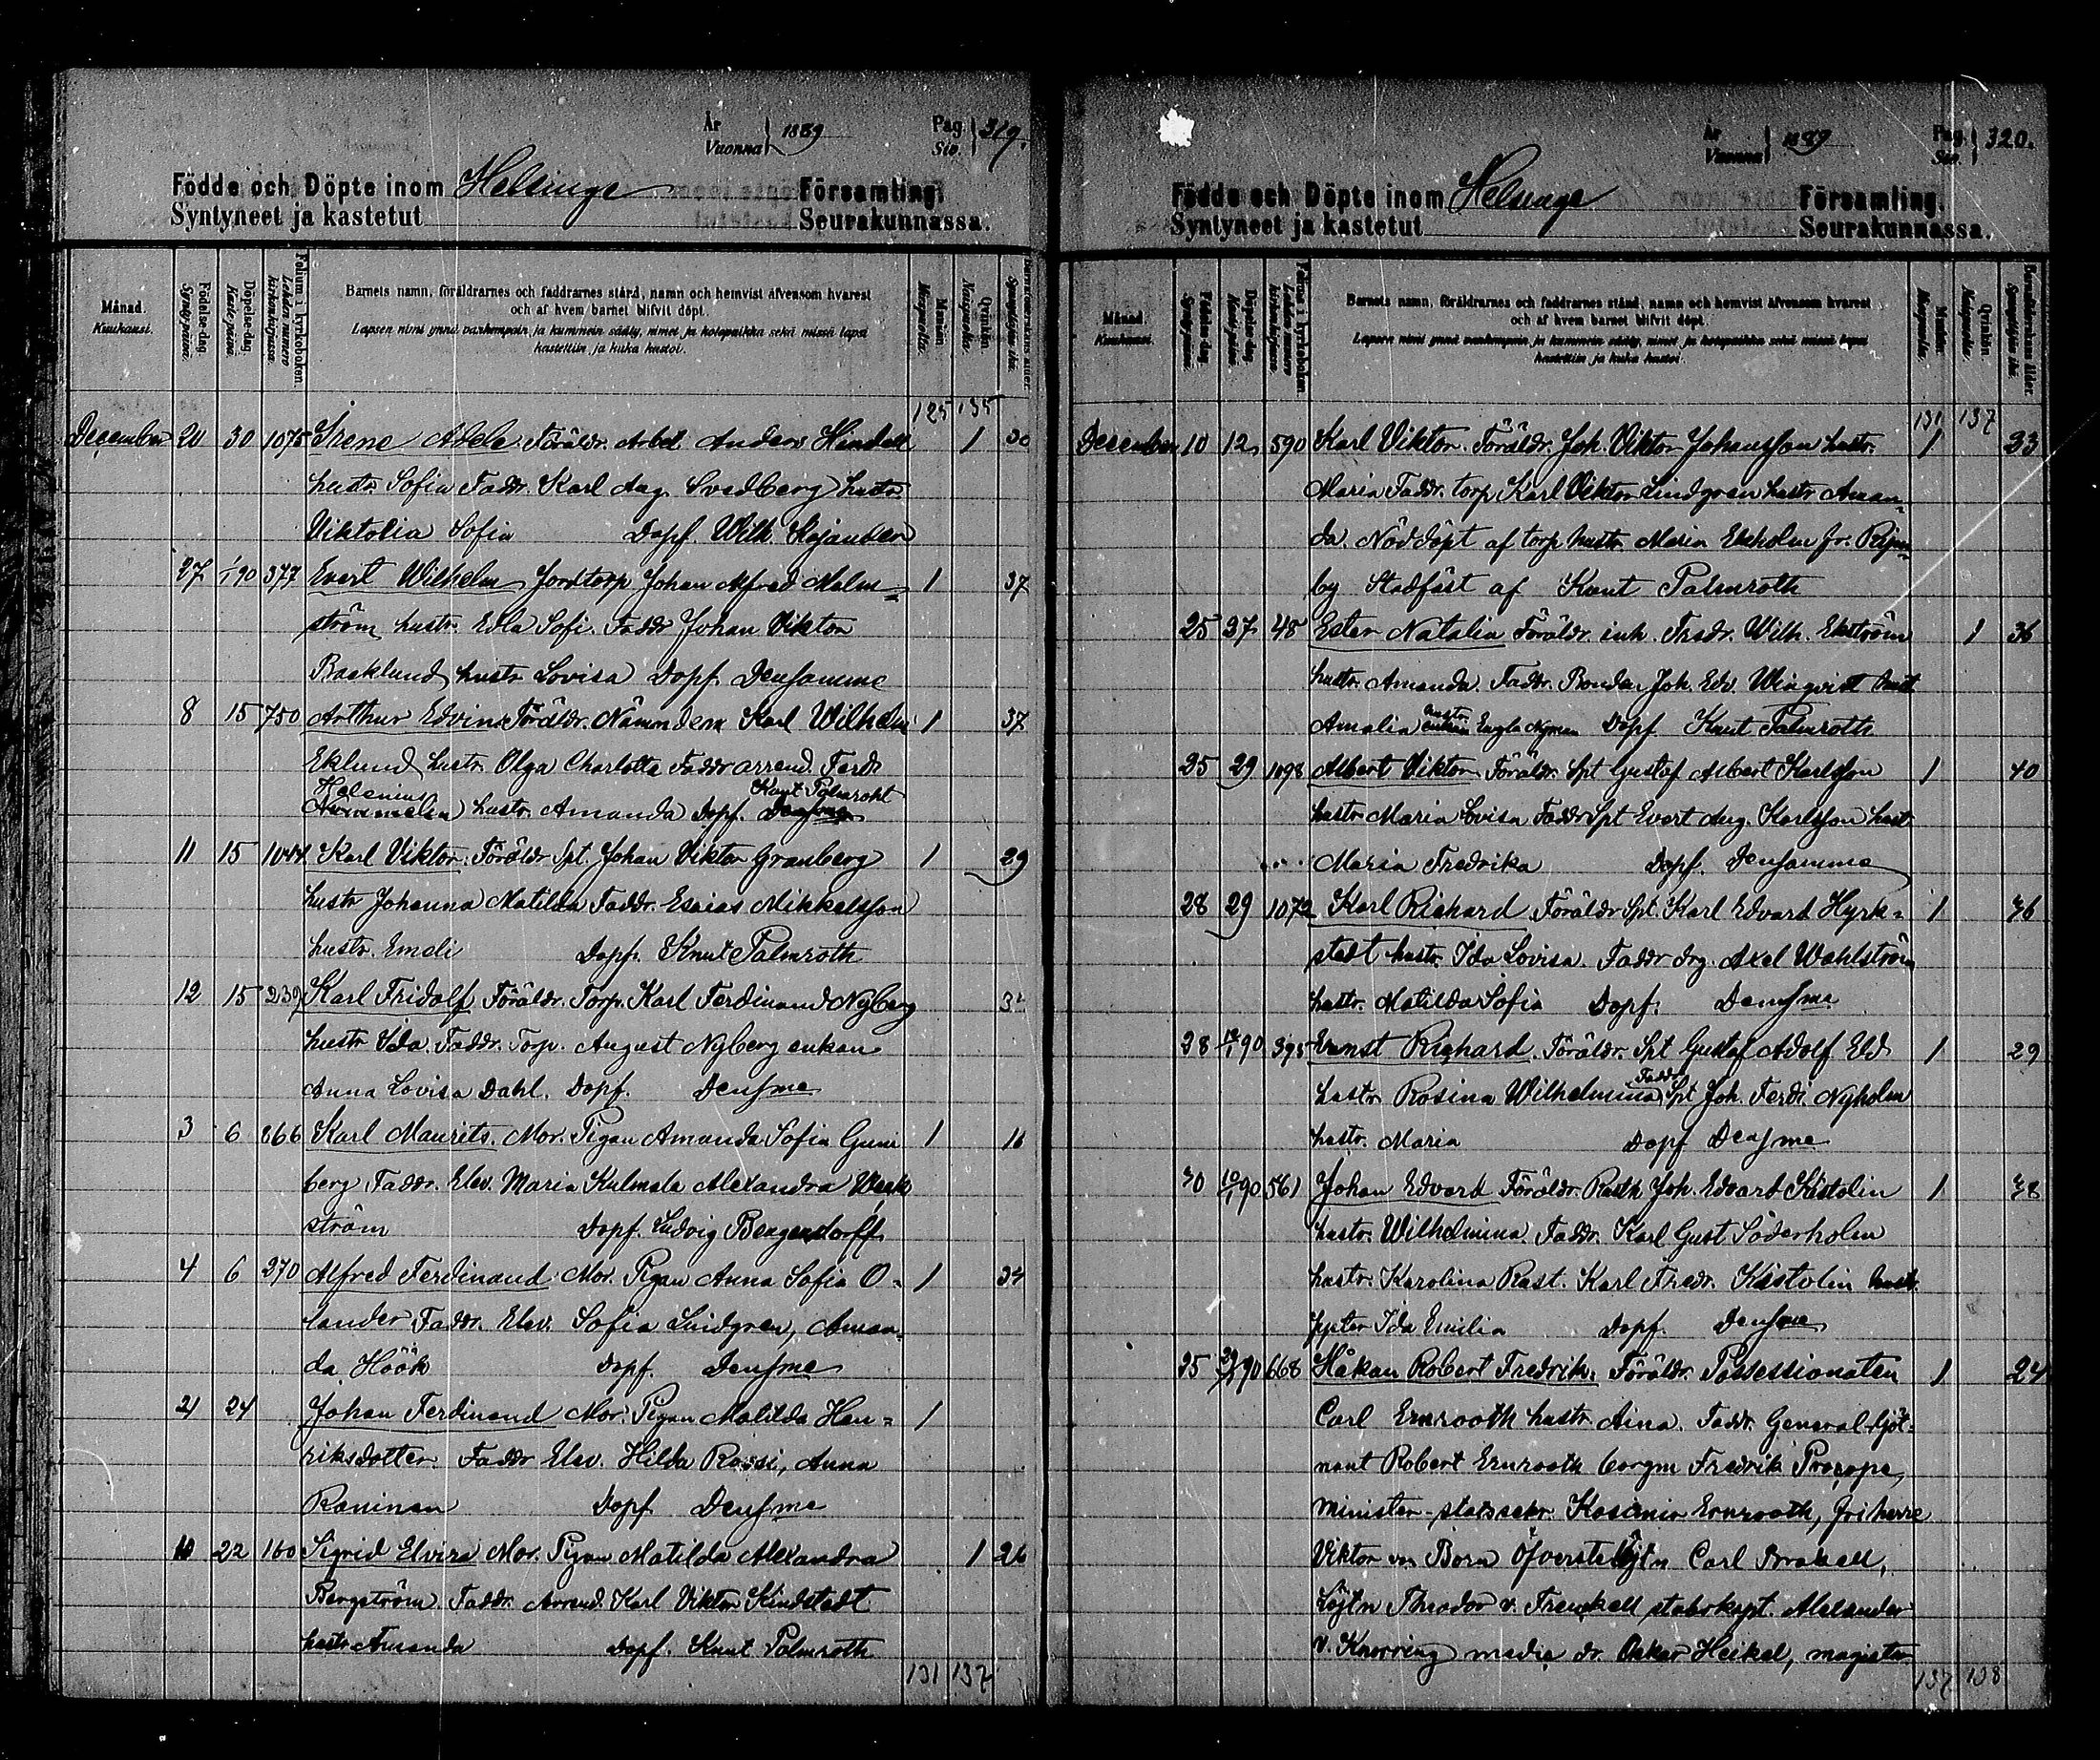 År 1889 Pag. 319.
Vuonna Siv.
Födde och Döpte inom Helsinge Församling.
Syntyneet ja kastetut Seurakunnassa.
Månad. Kuukausi.
Födelse-dag. Syntypäivä.
Döpelse-dag. Kastepäivä.
Folium i kyrkoboken. Lehden numero kirkonkirjassa.
Barnets namn, föräldrarnes och faddrarnes stånd, namn och hemvist äfvensom hvarest
och af hvem barnet blifvit döpt.
Lapsen nimi ynnä vanhempain ja kummein sääty, nimet ja kotopaikka sekä missä lapsi
kastettiin ja kuka kastoi.
Mankön. Miespuolia.
Qvinkön. Naispuolia.
Barnaföderskans ålder. Synnyttäjän ikä.
125 135
December 20 30 1075 Irene Adele Föräldr. Arbet. Anders Hindell 1 30
hustr. Sofia Faddr. Karl Aug. Svedberg hustr.
Viktolia Sofia Döpf. Wilh. Kajander
27 1/1 90 377 Evert Wilhelm Jordtorp Johan Alfred Malm= 1 37
ström hustr. Edla Sofi. Faddr Johan Viktor
Backlund hustr Lovisa Döpf. Densamme
8 15 750 Arthur Edvin Föräldr. Nämndem Karl Wilhelm 1 37
Eklund hustr. Olga Charlotta Faddr arrend. Ferd.
Helenius Knut Palmroht
hustr. Amanda Döpf. Densme
11 15 1044 Karl Viktor. Föräldr Spt. Johan Viktor Granberg 1 29
hustr Johanna Matilda Faddr. Esaias Mikkelsson
hustr. Emeli Döpf. Knut Palmroth
12 15 239 Karl Fridolf Föräldr. Torp. Karl Ferdinand Nyberg
hustr Ida. Faddr. Torp. August Nyberg enkan
Anna Lovisa Dahl. Döpf. Densme
3 6 866 Karl Maurits. Mor. Pigan Amanda Sofia 1
berg Faddr. Elev. Maria Kulmala Alexandra Weck
ström Döpf. Ludvig Bergendorff
4 6 270 Alfred Ferdinand Mor. Pigan Anna Sofia O= 1 24
lander Faddr. Elev. Sofia Lindgren, Aman
da Höök Döpf. Densme
21 24 Johan Ferdinand Mor. Pigan Matilda Hen= 1
riksdotter. Faddr Elev. Hilda Rossi, Anna
Roninen Döpf Densme
10 22 160 Sigrid Elvira Mor. Pigan Matilda Alexandra 1 26
Bergström Faddr. Arrend. Karl Viktor Kindstedt
hustr Amanda Döpf. Knut Palmroth
131 137
År 1889 Pag. 320.
Vuonna Siv.
Födde och Döpte inom Helsinge Församling.
Syntyneet ja kastetut Seurakunnassa.
Månad. Kuukausi.
Födelse-dag. Syntypäivä.
Döpelse-dag. Kastepäivä.
Folium i kyrkoboken. Lehden numero kirkonkirjassa.
Barnets namn, föräldrarnes och faddrarnes stånd, namn och hemvist äfvensom hvarest
och af hvem barnet blifvit döpt.
Lapsen nimi ynnä vanhempain ja kummein sääty, nimet ja kotopaikka sekä missä lapsi
kastettiin ja kuka kastoi.
Mankön. Miespuolia.
Qvinkön. Naispuolia.
Barnaföderskans ålder. Synnyttäjän ikä.
131 137
December 10 12 590 Karl Viktor. Föräldr. Joh. Viktor Johansson hustr. 1 33
Maria Faddr. torp Karl Viktor Lindgren hustr Aman=
da. Nöddöpt af torp hustr. Maria Ekholm fr.
by Stadfäst af Knut Palmroth
25 27 48 Ester Natalia Föräldr. inh. Fredr. Wilh. Ekström 1 36
hustr. Amanda. Faddr. Bonden Joh. Edv. Winqvist hust
Amalia hustr. Engla Nyman Döpf Knut Palmroth
25 29 1098 Albert Viktor Föräldr. Spt Gustaf Albert Karlsson 1 40
hustr Maria Lovisa Faddr Spt Evert Aug. Karlsson hust
Maria Fredrika Döpf. Densamme
28 29 1072 Karl Richard Föräldr Spt. Karl Edvard Hyrk= 1 36
stedt hustr. Ida Lovisa. Faddr drg. Axel Wahlström
hustr. Matilda Sofia Döpf. Densme
28 90 395 Ernst Richard. Föräldr. Spt Gustaf Adolf Eld 1 29
Faddr.
hustr. Rosina Wilhelmina Spt Joh. Ferd. Nyholm
hustr. Maria Döpf Densme
30 10/1 90 561 Johan Edvard Föräldr. Rusth Joh. Edvard Kästolin 1 38
hustr. Wilhelmina. Faddr. Karl Gust Söderholm
hustr. Karolina Rust. Karl Fredr. Kästolin hustr.
Ida Emilia Döpf. Densme
25 90 668 Håkan Robert Fredrik. Föräldr. Possessionaten 1 24
Carl Ernrooth hustr. Aina. Faddr. General Löjt=
nant Robert Ernrooth borgm Fredrik Procope,
minister statssekr. Kasimir Ernrooth, friherre
Viktor von Born Öfverstelöjtn Carl Brakell,
Löjtn Theodor v. Frenckell stabskapt. Alexander
v. Knorring medic dr. Oskar Heikel, magister
137 138